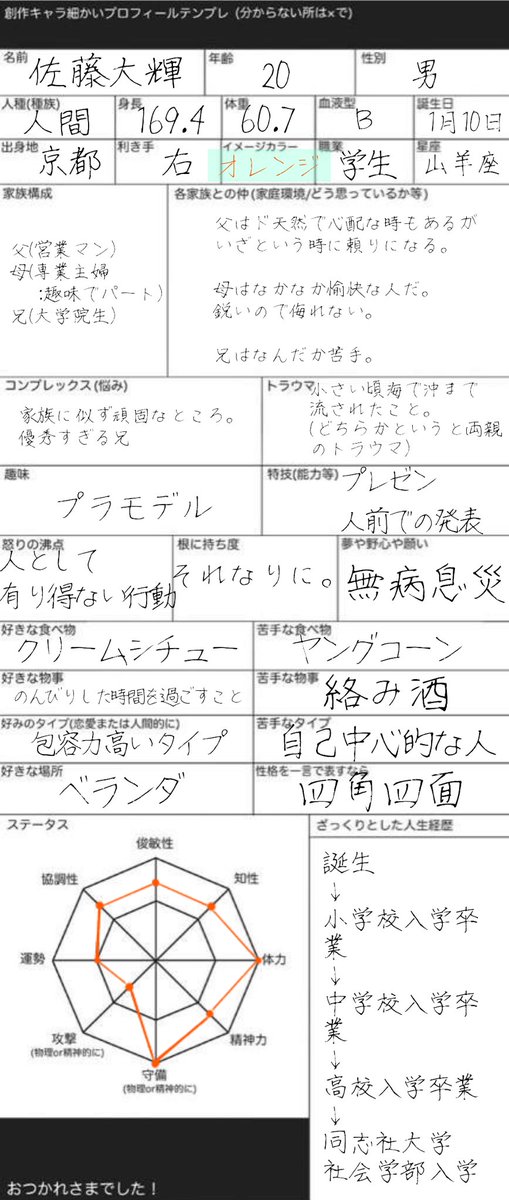 創作キャラ細かいプロフィールテンプレ (分からない所は×で)
名前
佐藤大輝
年齢
20
性別
男
人種(種族)
人間
身長
169.4
体重
60.7
血液型
B
誕生日
1月10日
出身地
京都
利き手
右
イメージカラー
オレンジ
職業
学生
星座
山羊座
家族構成
父(営業マン)
母(専業主婦
:趣味でパート)
兄(大学院生)
各家族との仲(家庭環境/どう思っているか等)
父はド天然で心配な時もあるが
いざという時に頼りになる。
母はなかなか愉快な人だ。
鋭いので侮れない。
兄はなんだか苦手。
コンプレックス(悩み)
家族に似ず頑固なところ。
優秀すぎる兄
トラウマ
小さい頃海で沖まで
流されたこと。
(どちらかというと両親
のトラウマ)
趣味
プラモデル
特技(能力等)
プレゼン
人前での発表
怒りの沸点
人として
有り得ない行動
根に持ち度
それなりに。
夢や野心や願い
無病息災
好きな食べ物
クリームシチュー
苦手な食べ物
ヤングコーン
好きな物事
のんびりした時間を過ごすこと
苦手な物事
絡み酒
好みのタイプ(恋愛または人間的に)
包容力高いタイプ
苦手なタイプ
自己中心的な人
好きな場所
ベランダ
性格を一言で表すなら
四角四面
ステータス
俊敏性
知性
体力
精神力
守備
(物理or精神的に)
攻撃
(物理or精神的に)
運勢
協調性
ざっくりとした人生経歴
誕生
↓
小学校入学卒
業
↓
中学校入学卒
業
↓
高校入学卒業
↓
同志社大学
社会学部入学
おつかれさまでした！